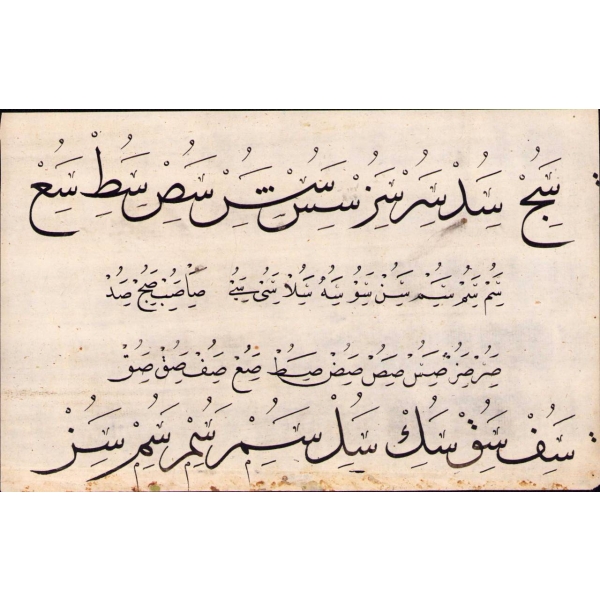 سج سد سر سز سس سش سص سط سع
سم سم سم سن سو سه سلا سى سے صا صب صج صد
صر صز صس صص صض صط صع صف صق صق
سف سق سك سل سم سم سم سن